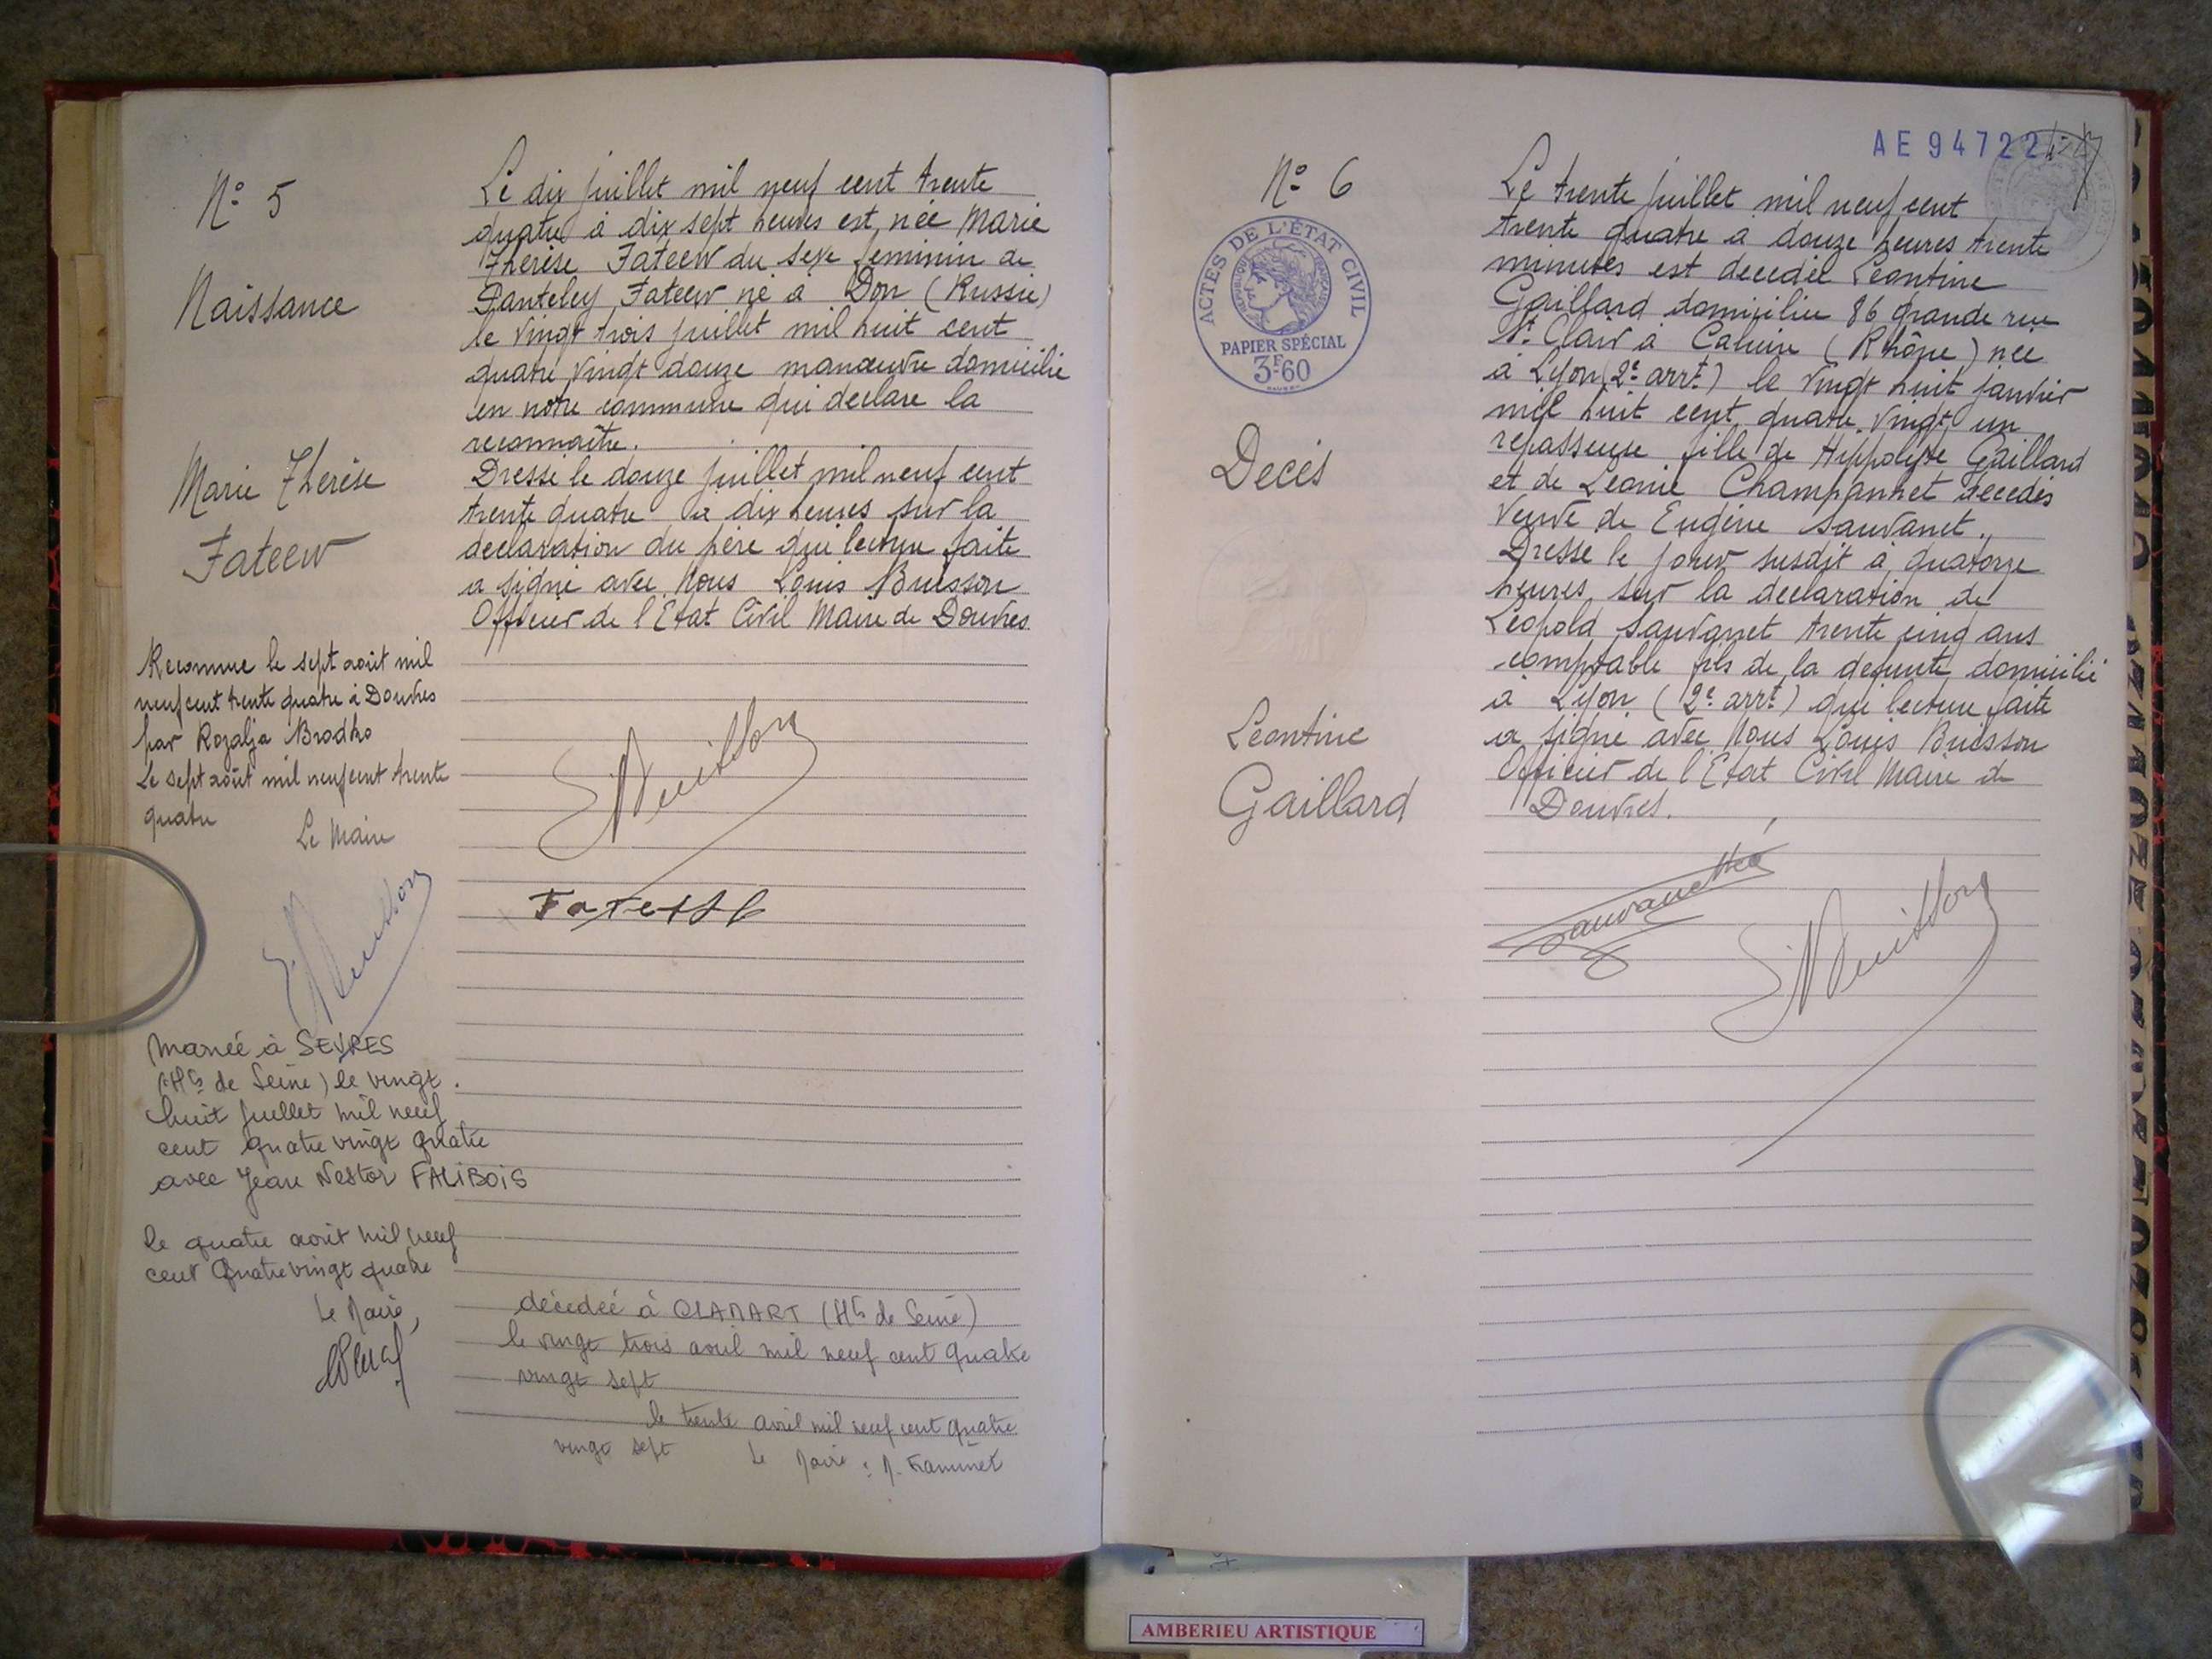 N° 5
Naissance
Marie Thérèse
Fateew
Le dix juillet mil neuf cent trente
quatre à dix sept heures est née Marie
Thérèse Fateew du sexe féminin de
Panteley Fateew né à Don (Russie)
le vingt trois juillet mil huit cent
quatre vingt douze manœuvre domicilié
en notre commune qui déclare la
reconnaître.
Dressé le douze juillet mil neuf cent
trente quatre à dix heures sur la
déclaration du père qui lecture faite
a signé avec Nous Louis Buisson
Officier de l'Etat Civil Maire de Douvres
Reconnue le sept août mil
neuf cent trente quatre à Douvres
par Rozalja Brodko
Le sept août mil neuf cent trente
quatre
Le Maire
Buisson
Buisson
mariée à SEVRES
(Hts de Seine) le vingt
huit juillet mil neuf
cent quatre vingt quatre
avec Jean Nestor FALIBOIS
le quatre août mil neuf
cent quatre vingt quatre
Le Maire,
décédée à CLAMART (Hts de Seine)
le vingt trois avril mil neuf cent quatre
vingt sept
le trente avril mil neuf cent quatre
vingt sept Le Maire :
AE 94722
N° 6
ACTES DE L'ÉTAT CIVIL
RÉPUBLIQUE FRANÇAISE
PAPIER SPÉCIAL
3F60
Décès
Léontine
Gaillard
Le trente juillet mil neuf cent
trente quatre à douze heures trente
minutes est décédée Léontine
Gaillard domiciliée 86 grande rue
St Clair à Caluire (Rhône) née
à Lyon (2e arrt) le vingt huit janvier
mil huit cent quatre vingt un
repasseuse fille de Hippolyte Gaillard
et de Léonie Champannet décédés
Veuve de Eugène Sauvanet.
Dressé le jour susdit à quatorze
heures, sur la déclaration de
Léopold Sauvanet trente cinq ans
comptable fils de la défunte domicilié
à Lyon (2e arrt) qui lecture faite
a signé avec Nous Louis Buisson
Officier de l'Etat Civil Maire de
Douvres.
Sauvanet
Buisson
AMBERIEU ARTISTIQUE